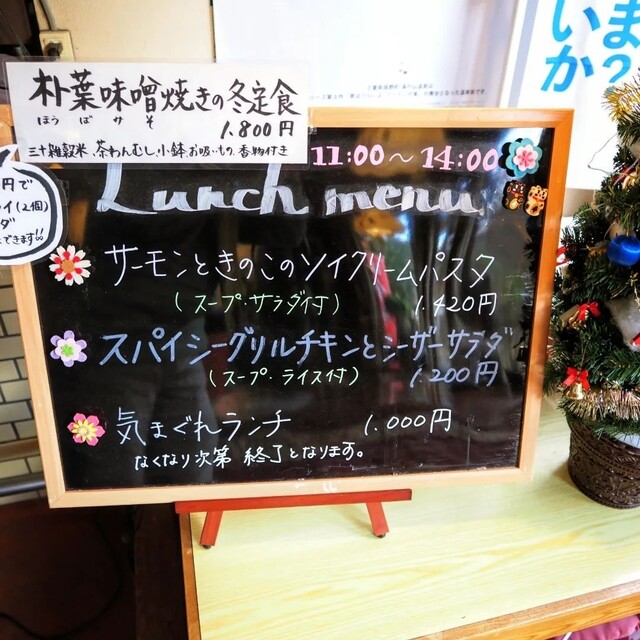 朴葉味噌焼きの冬定食
ほうばみそ
1.800円
三十雑穀米、茶わんむし、小鉢、お吸いもの、香物付き
円で
イ(2個)
ダ
できます!!
11:00〜14:00
Lunch menu
サーモンときのこのソイクリームパスタ
(スープ・サラダ付)
1.420円
スパイシーグリルチキンとシーザーサラダ
(スープ・ライス付)
1.200円
気まぐれランチ
1.000円
なくなり次第 終了となります。
ま?
いか